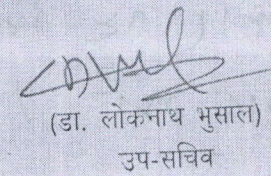 (डा. लोकनाथ भुसाल)
उप-सचिव